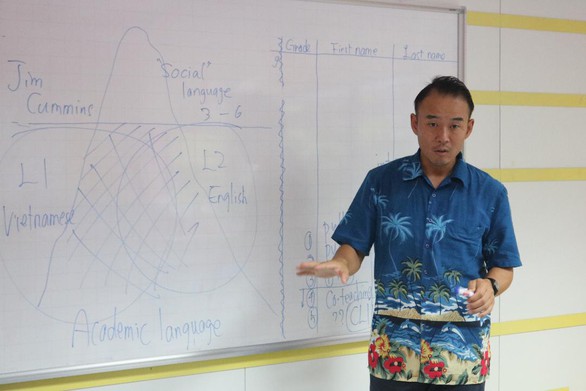 Jim
Cummins
"Social"
language
3 - 6
L1
Vietnamese
L2
English
Academic language
Grade First name Last name
Co-teaching